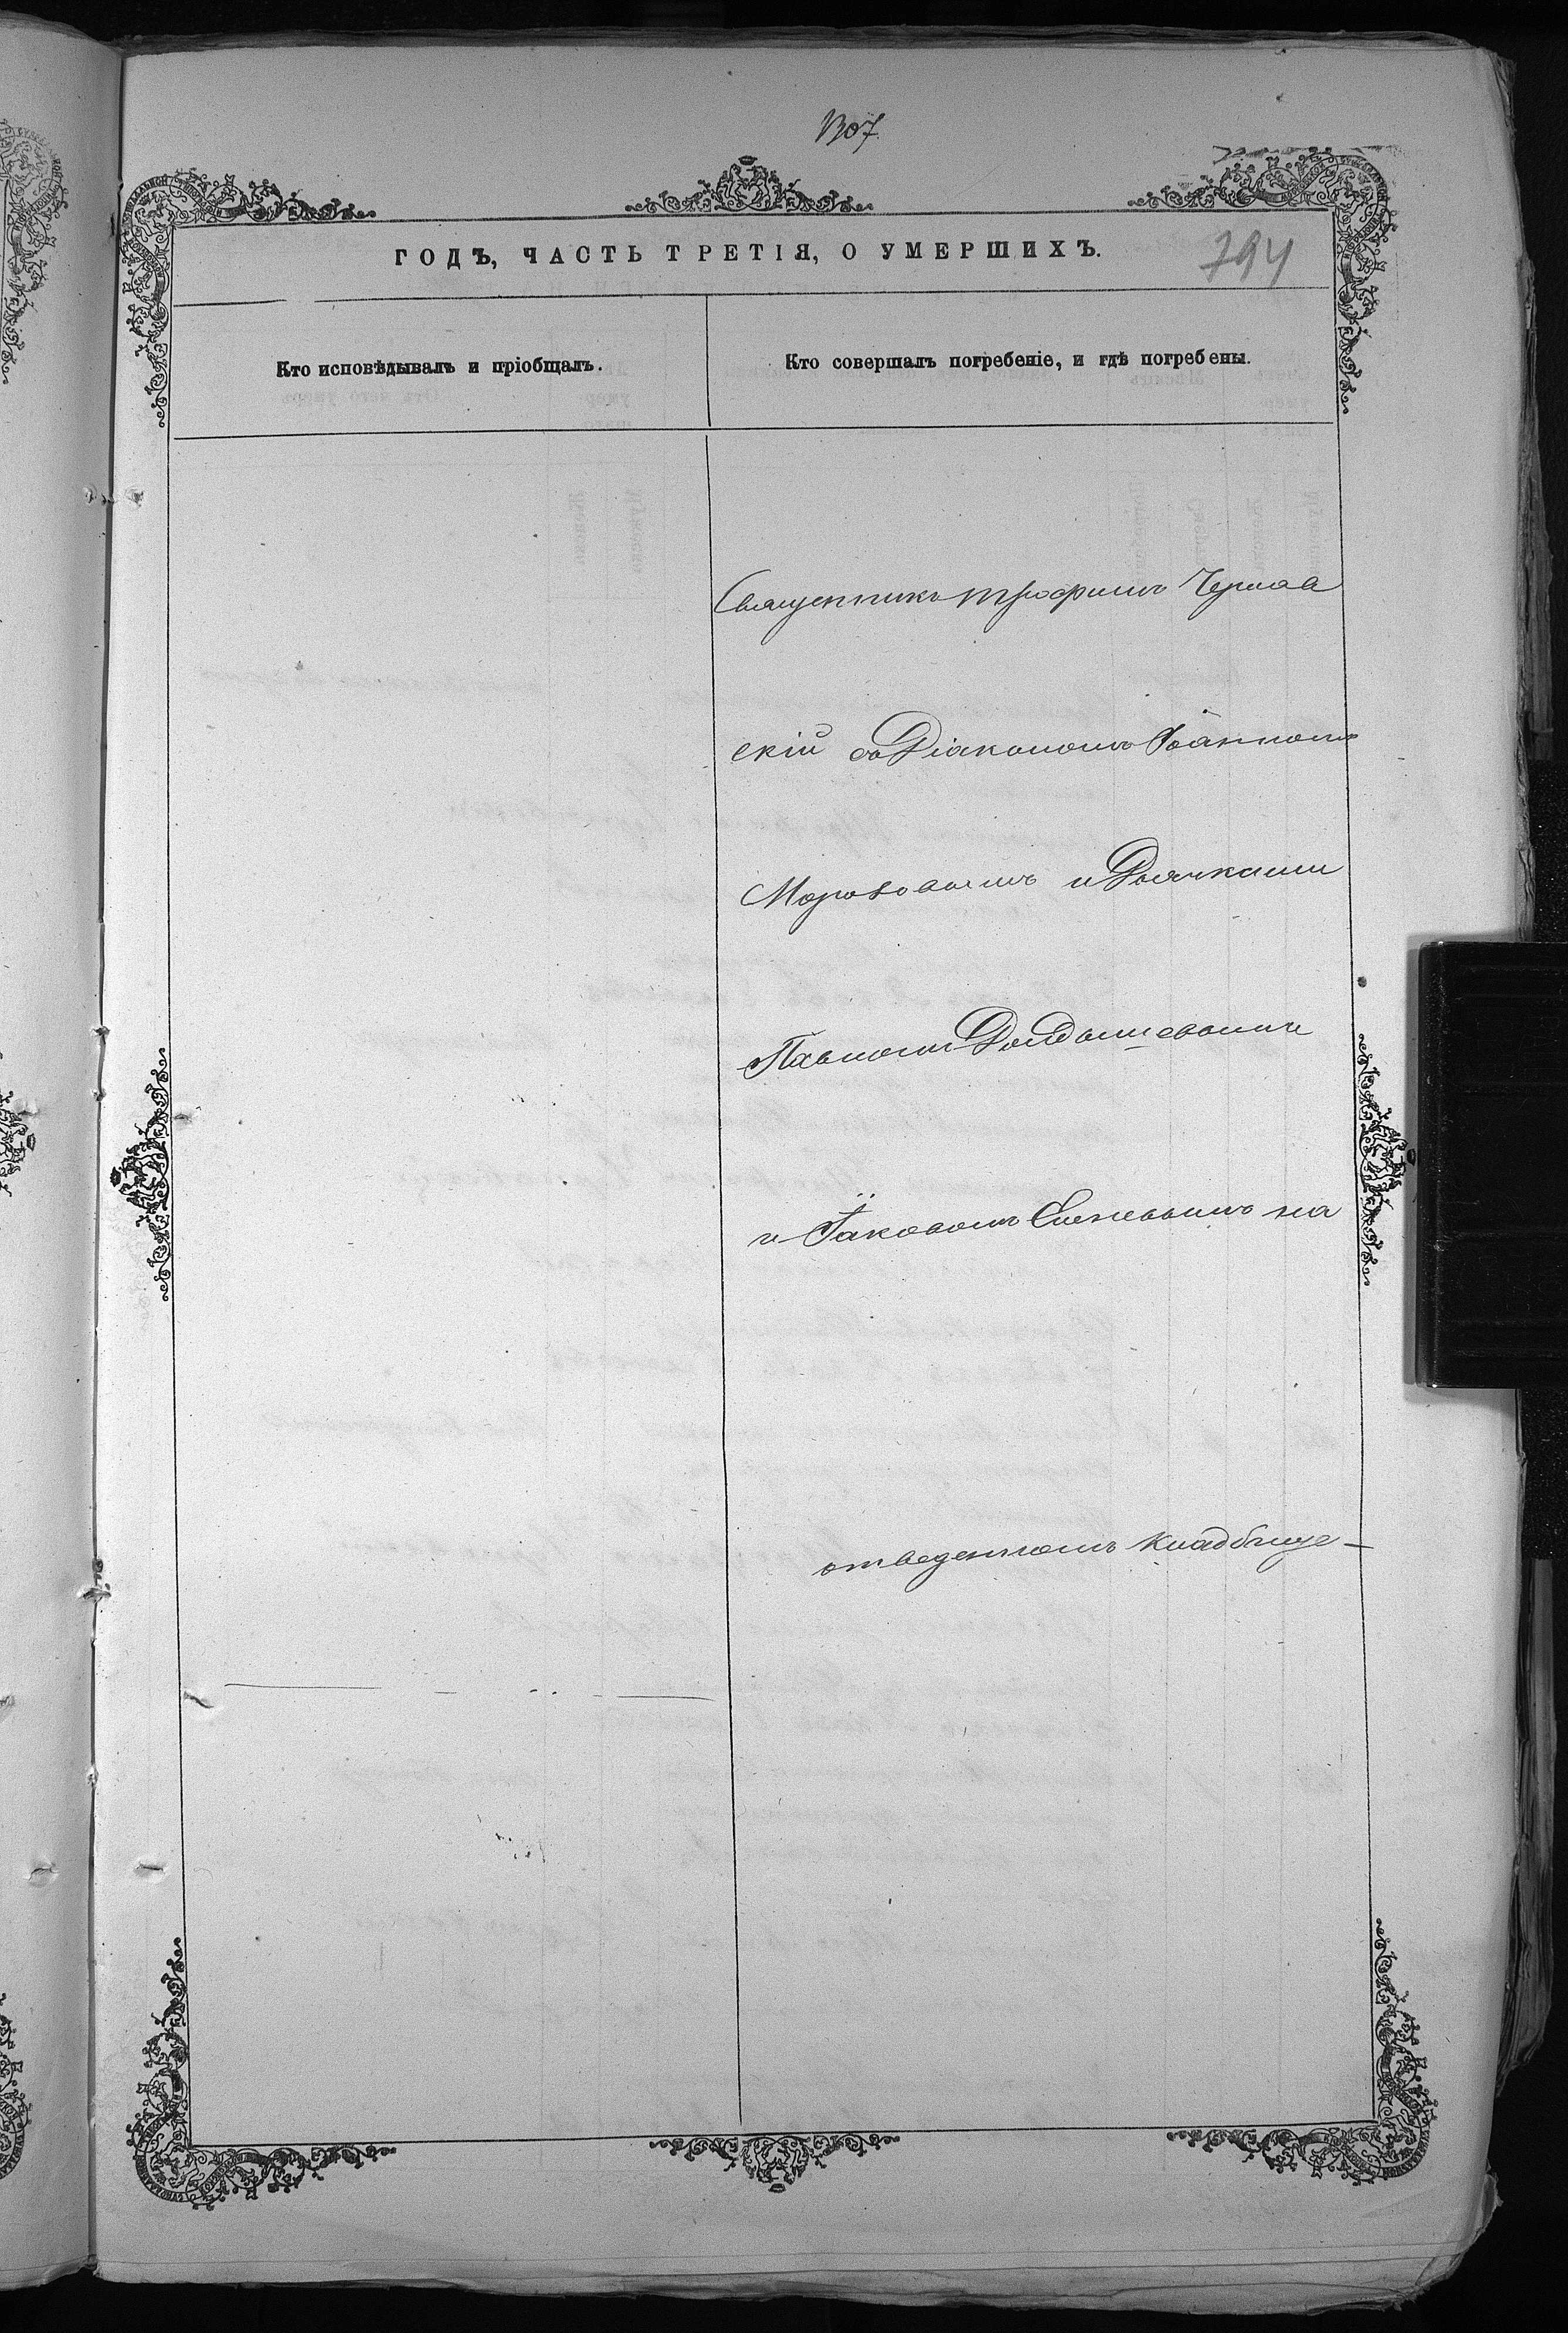 1307.
794
ГОДЪ, ЧАСТЬ ТРЕТІЯ, О УМЕРШИХЪ.
Кто исповѣдывалъ и пріобщалъ.
Кто совершалъ погребеніе, и гдѣ погребены.
Священникъ Трофимъ Чернав
скій съ Діакономъ Іоанномъ
Морозовымъ и Дьячками
Павломъ
и Іаковомъ на
отведенномъ кладбище –